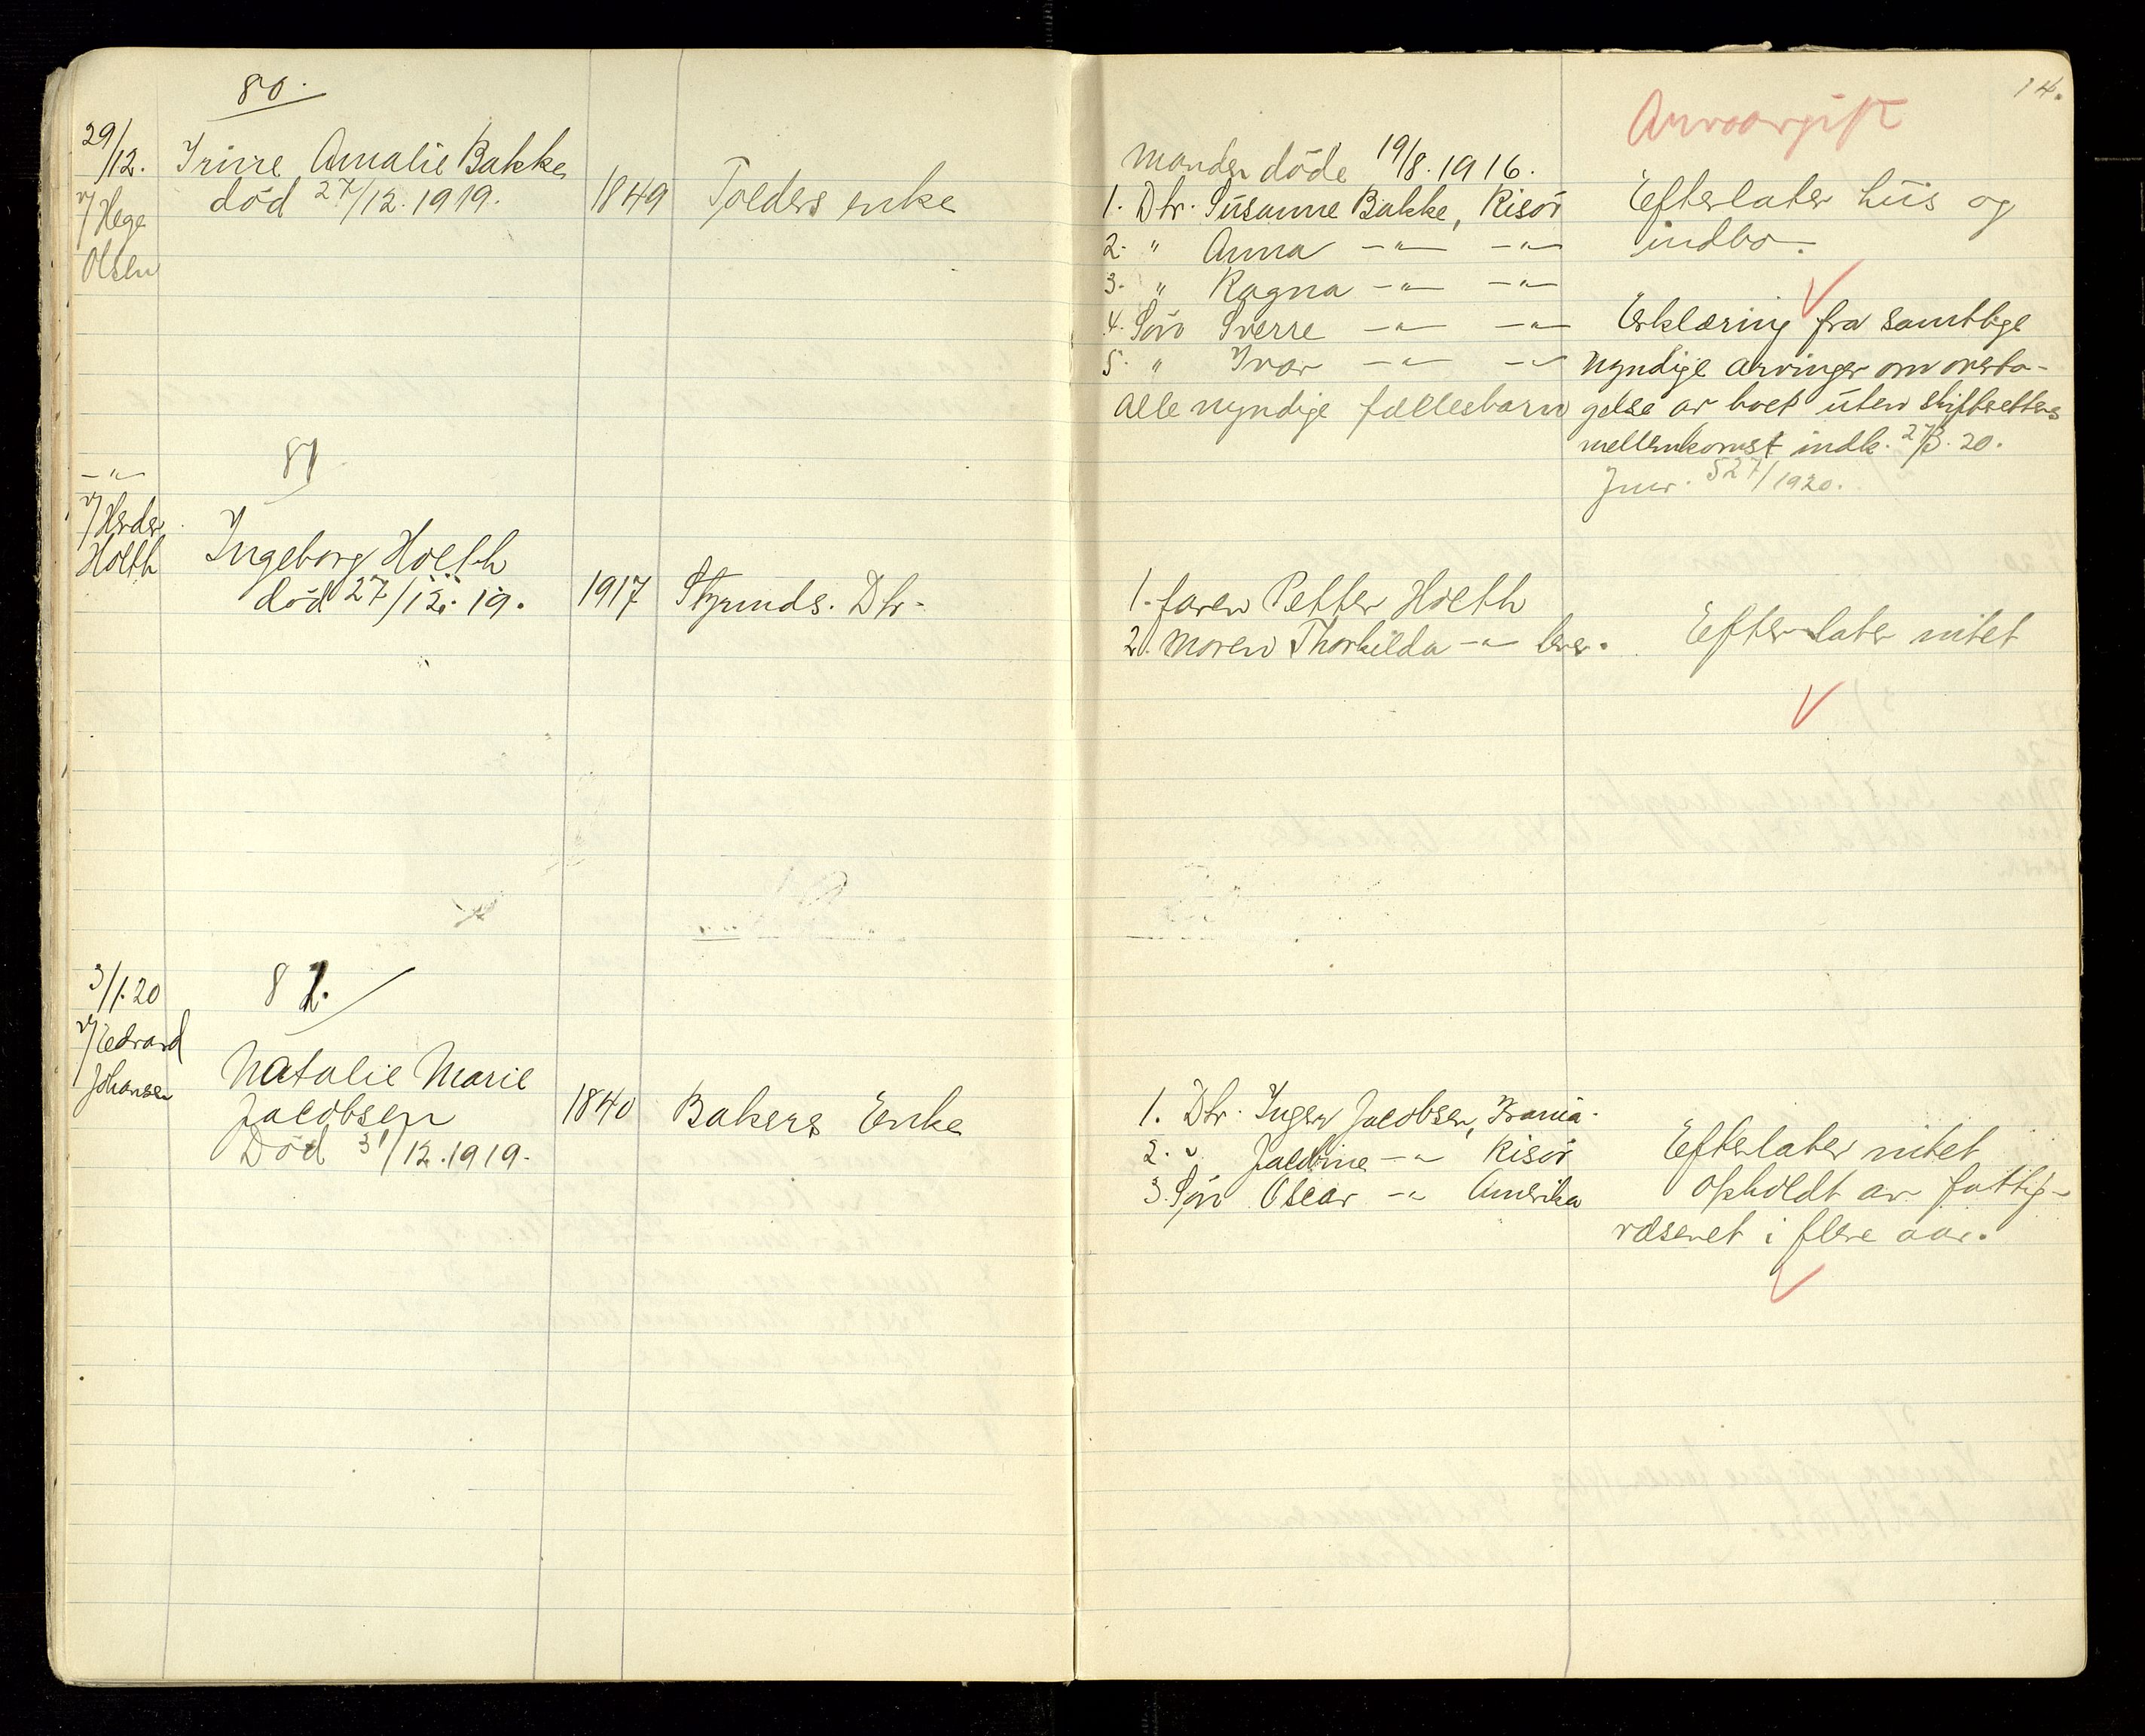 14.
80.
29/12.
v/ Hege
Olsen
Trine Amalie Bakke
död 27/12. 1919.
1849
Tolders enke
Manden döde 19/8. 1916.
1. Dtr. Susanne Bakke, Risör
2. " Anna -"- -"-
3. " Ragna -"- -"-
4. Sön Sverre -"- -"-
5. " Ivar -"- -"-
Alle myndige fællesbarn
Arveavgift
Efterlater hus og
indbo.
Erklæring fra samtlige
myndige arvinger om overta-
gelse av boet uten skifterettens
mellemkomst indk. 27/3. 20.
Jnr. 527/1920.
-"-
v/
Holth
81
Ingeborg Holth
död 27/12. 19.
1917
Styrmds. Dtr.
1. faren Petter Holth
2. moren Thorhilda -"- lever.
Efterlater intet
3/1. 20
v/ Edvard
Johansen
82.
Natalie Marie
Jacobsen
Död 31/12. 1919.
1840
Bakers Enke
1. Dtr. Inger Jacobsen,
2. " Jacobine -"- Risör
3. Sön Oscar -"- Amerika
Efterlater intet
Opholdt av fattig-
væsenet i flere aar.